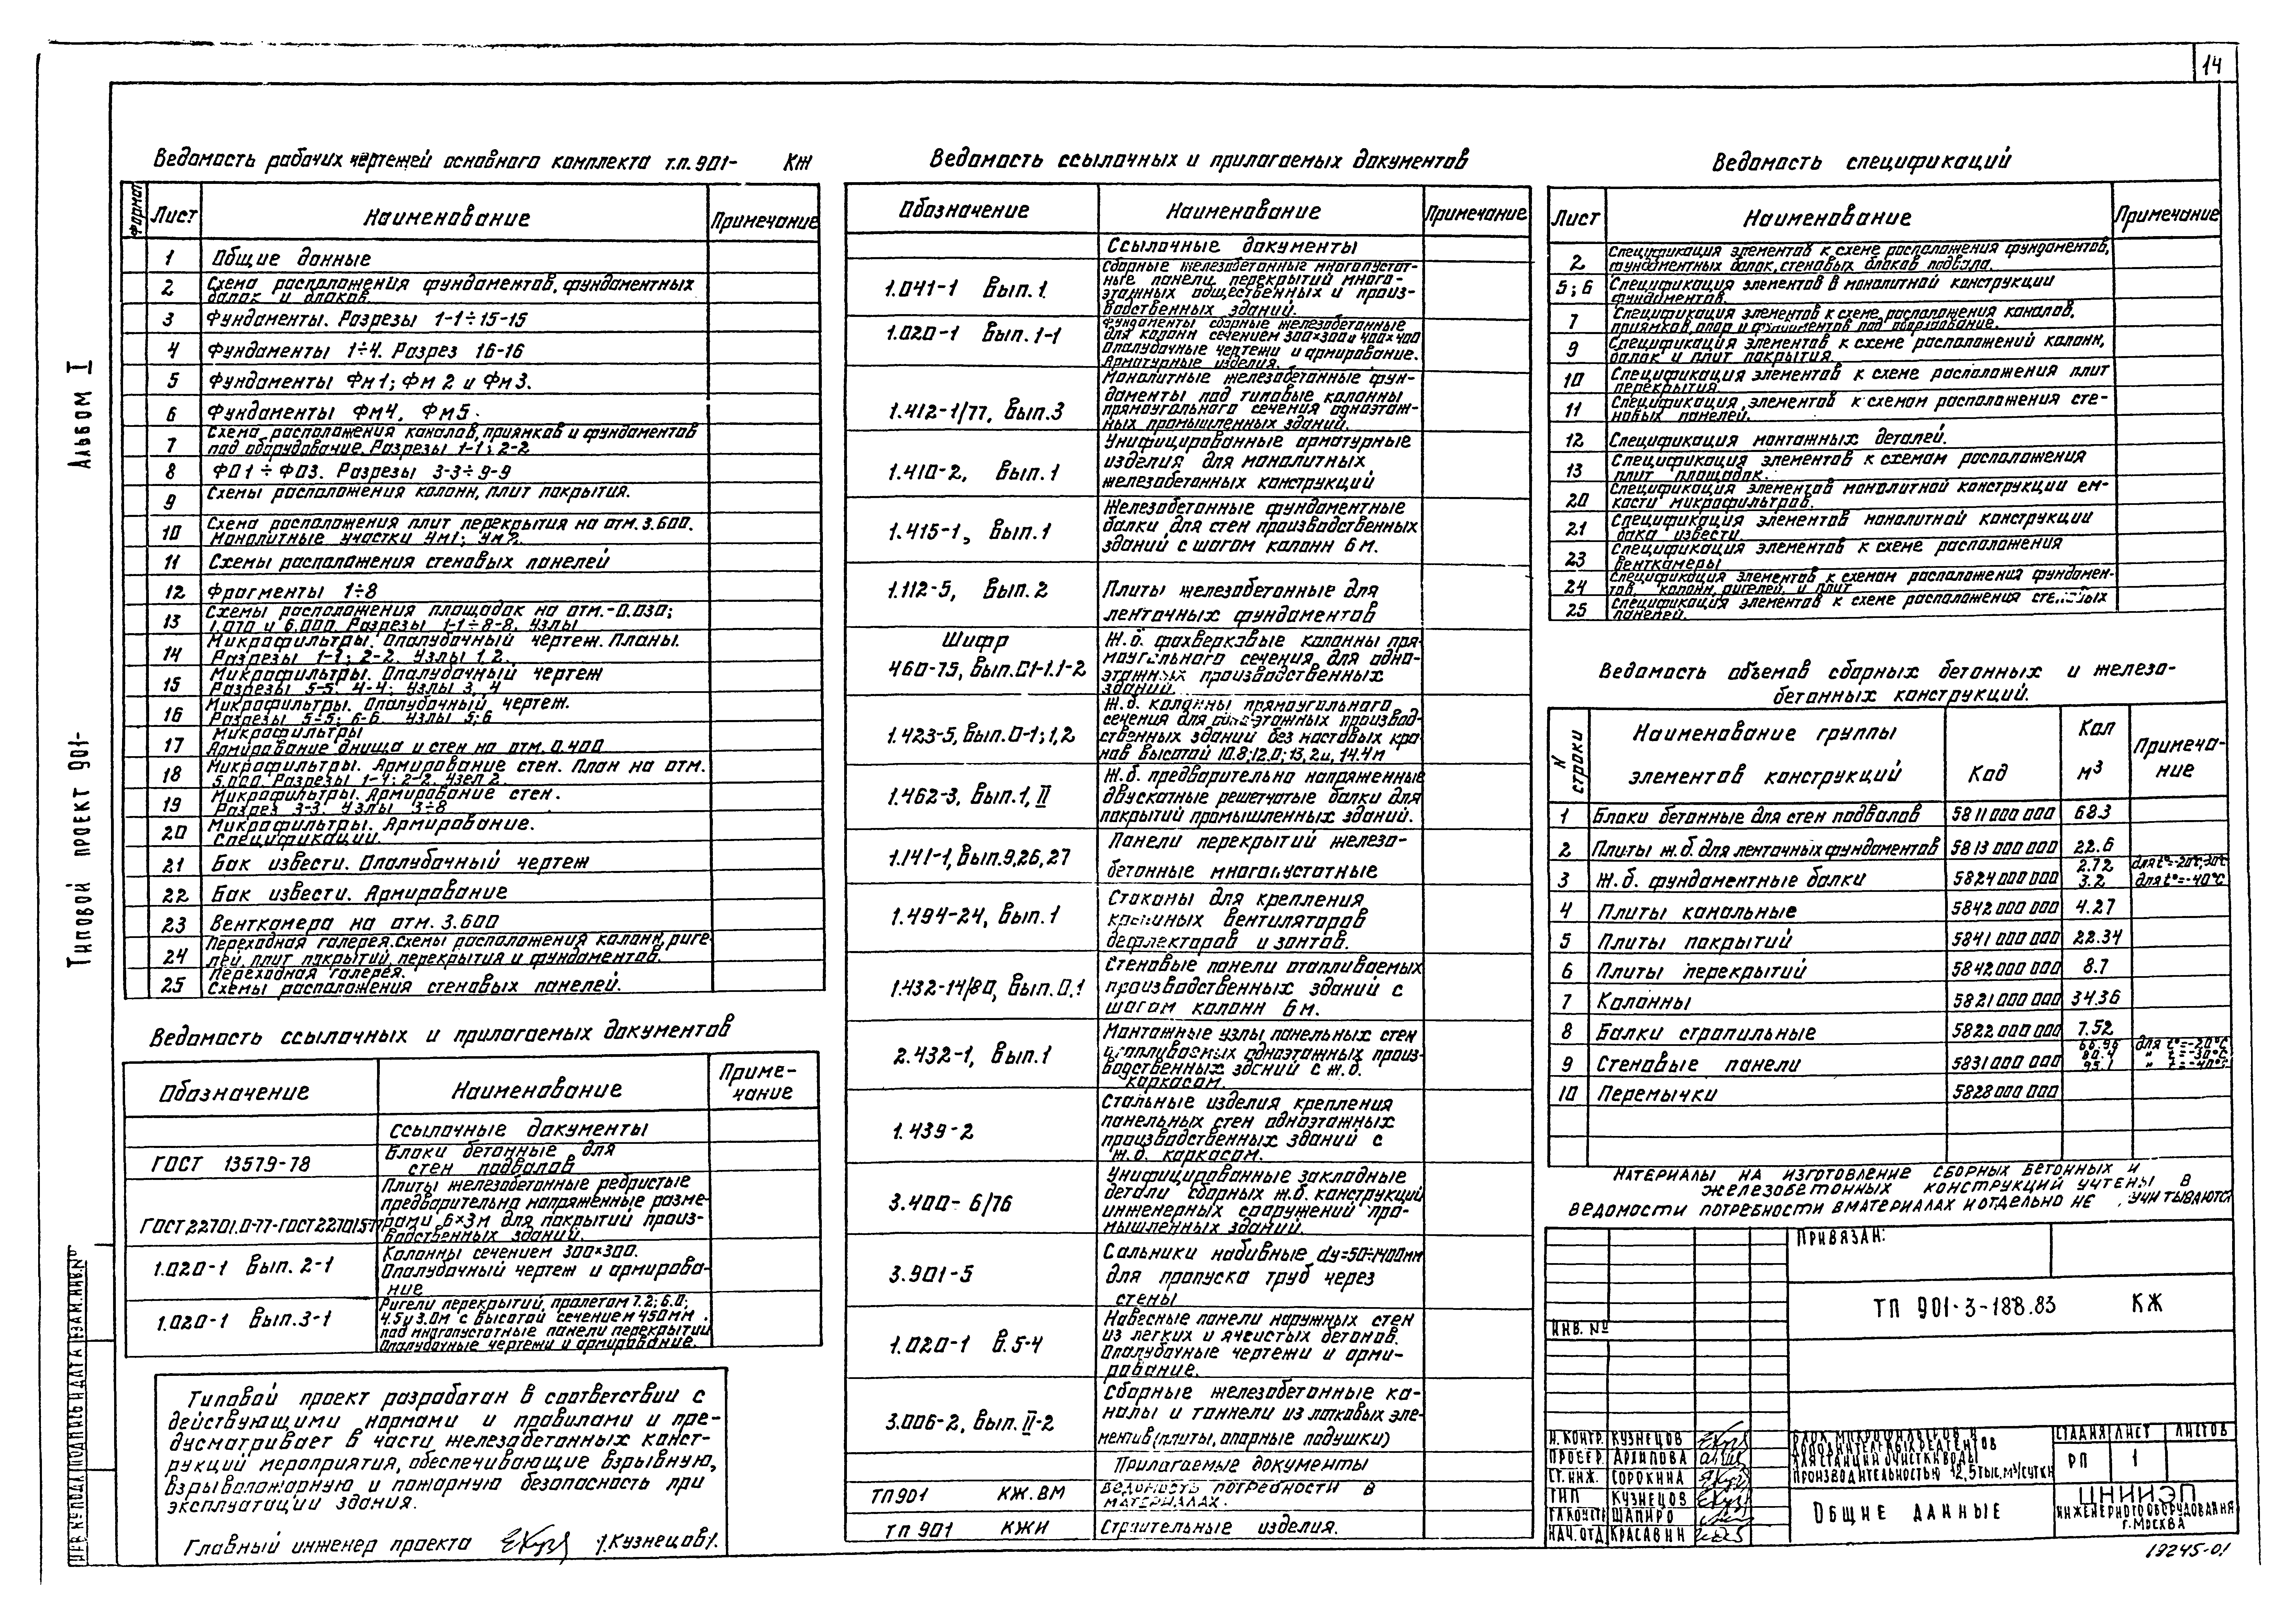 14
Альбом I
Типовой проект 901-
Ведомость рабочих чертежей основного комплекта т.п. 901- КЖ
Формат Лист Наименование Примечание
1 Общие данные
2 Схема расположения фундаментов, фундаментных
балок и блоков.
3 Фундаменты. Разрезы 1-1÷15-15
4 Фундаменты 1÷4. Разрез 16-16
5 Фундаменты Фм1; Фм 2 и Фм3.
6 Фундаменты Фм4, Фм5.
7 Схема расположения каналов, приямков и фундаментов
под оборудование. Разрезы 1-1; 2-2
8 ФО1÷ФО3. Разрезы 3-3÷9-9
9 Схемы расположения колонн, плит покрытия.
10 Схема расположения плит перекрытия на отм. 3.600.
Монолитные участки Ум1; Ум2.
11 Схемы расположения стеновых панелей
12 Фрагменты 1÷8
13 Схемы расположения площадок на отм.-0.030;
1.070 и 6.000 Разрезы 1-1÷8-8. Узлы
14 Микрофильтры. Опалубочный чертеж. Планы.
Разрезы 1-1; 2-2. Узлы 1,2.
15 Микрофильтры. Опалубочный чертеж
Разрезы 5-5; 4-4; Узлы 3, 4
16 Микрофильтры. Опалубочный чертеж.
Разрезы 5-5; 6-6. Узлы 5;6
17 Микрофильтры
Армирование днища и стен на отм. 0.400
18 Микрофильтры. Армирование стен. План на отм.
5.000. Разрезы 1-1; 2-2. Узел 2.
19 Микрофильтры. Армирование стен.
Разрез 3-3. Узлы 3÷8
20 Микрофильтры. Армирование.
Спецификации.
21 Бак извести. Опалубочный чертеж
22 Бак извести. Армирование
23 Венткамера на отм. 3.600
24 Переходная галерея. Схемы расположения колонн, риге-
лей, плит покрытий, перекрытия и фундаментов.
25 Переходная галерея.
Схемы расположения стеновых панелей.
Ведомость ссылочных и прилагаемых документов
Обозначение Наименование Приме-
чание
Ссылочные документы
ГОСТ 13579-78 Блоки бетонные для
стен подвалов
ГОСТ 22701.0-77-ГОСТ 22701.5-77 Плиты железобетонные ребристые
предварительно напряженные разме-
рами 6×3м для покрытий произ-
водственных зданий.
1.020-1 Вып. 2-1 Колонны сечением 300×300.
Опалубочный чертеж и армирова-
ние
1.020-1 Вып.3-1 Ригели перекрытий, пролетом 7.2; 6.0;
4.5 и 3.0м с высотой сечением 450мм.
под многопустотные панели перекрытий
Опалубочные чертежи и армирование.
Типовой проект разработан в соответствии с
действующими нормами и правилами и пре-
дусматривает в части железобетонных конст-
рукций мероприятия, обеспечивающие взрывную,
взрывопожарную и пожарную безопасность при
эксплуатации здания.
Главный инженер проекта /.Кузнецов/.
Ведомость ссылочных и прилагаемых документов
Обозначение Наименование Примечание
Ссылочные документы
1.041-1 Вып.1. Сборные железобетонные многопустот-
ные панели перекрытий много-
этажных общественных и произ-
водственных зданий.
1.020-1 Вып.1-1 Фундаменты сборные железобетонные
для колонн сечением 300×300 и 400×400
Опалубочные чертежи и армирование.
Арматурные изделия.
1.412-1/77, Вып.3 Монолитные железобетонные фун-
даменты под типовые колонны
прямоугольного сечения одноэтаж-
ных промышленных зданий.
1.410-2, Вып. 1 Унифицированные арматурные
изделия для монолитных
железобетонных конструкций
1.415-1, Вып.1 Железобетонные фундаментные
балки для стен производственных
зданий с шагом колонн 6 м.
1.112-5, Вып. 2 Плиты железобетонные для
ленточных фундаментов
Шифр
460-75, Вып.01-1.1-2 Ж.б. фахверковые колонны пря-
моугольного сечения для одно-
этажных производственных
зданий.
1.423-5, Вып.0-1; 1,2 Ж.б. колонны прямоугольного
сечения для одноэтажных производ-
ственных зданий без мостовых кра-
нов высотой 10.8; 12.0; 13,2 и, 14.4 м
1.462-3, Вып.1, II Ж.б. предварительно напряженные
двускатные решетчатые балки для
покрытий промышленных зданий.
1.141-1, Вып.9,26,27 Панели перекрытий железо-
бетонные многопустотные
1.494-24, Вып.1 Стаканы для крепления
крышных вентиляторов
дефлекторов и зонтов.
1.432-14/80, Вып.0,1 Стеновые панели отапливаемых
производственных зданий с
шагом колонн 6 м.
2.432-1, Вып.1 Монтажные узлы панельных стен
отапливаемых одноэтажных произ-
водственных зданий с ж.б.
каркасом.
1.439-2 Стальные изделия крепления
панельных стен одноэтажных
производственных зданий с
ж.б. каркасом.
3.400-6/76 Унифицированные закладные
детали сборных ж.б. конструкций
инженерных сооружений про-
мышленных зданий.
3.901-5 Сальники набивные dу=50÷1400мм
для пропуска труб через
стены
1.020-1 В.5-4 Навесные панели наружных стен
из легких и ячеистых бетонов.
Опалубочные чертежи и арми-
рование.
3.006-2, Вып. II-2 Сборные железобетонные ка-
налы и тоннели из лотковых эле-
ментов (плиты, опорные подушки)
Прилагаемые документы
ТП901 КЖ.ВМ Ведомость потребности в
материалах.
ТП 901 КЖИ Строительные изделия.
Ведомость спецификаций
Лист Наименование Примечание
2 Спецификация элементов к схеме расположения фундаментов,
фундаментных балок, стеновых блоков подвала.
5; 6 Спецификация элементов в монолитной конструкции
фундаментов.
7 Спецификация элементов к схеме расположения каналов,
приямков, опор и фундаментов под оборудование.
9 Спецификация элементов к схеме расположений колонн,
балок и плит покрытия.
10 Спецификация элементов к схеме расположения плит
перекрытия
11 Спецификация, элементов к схемам расположения сте-
новых панелей.
12 Спецификация монтажных деталей.
13 Спецификация элементов к схемам расположения
плит площадок.
20 Спецификация элементов монолитной конструкции ем-
кости микрофильтров.
21 Спецификация элементов монолитной конструкции
бака извести.
23 Спецификация элементов к схеме расположения
венткамеры
24 Спецификация элементов к схемам расположения фундамен-
тов, колонн, ригелей, и плит
25 Спецификация элементов к схеме расположения стеновых
панелей.
Ведомость объемов сборных бетонных и железо-
бетонных конструкций.
N строки Наименование группы
элементов конструкций Код Кол
м³ Примеча-
ние
1 Блоки бетонные для стен подвалов 5811000000 68.3
2 Плиты ж.б. для ленточных фундаментов 5813000000 22.6
3 Ж.б. фундаментные балки 5824000000 2.72 для t°=-20°С,-30°С
3.2 для t°=-40°С
4 Плиты канальные 5842000000 4.27
5 Плиты покрытий 5841000000 22.34
6 Плиты перекрытий 5842000000 8.7
7 Колонны 5821000000 34.36
8 Балки стропильные 5822000000 7.52
9 Стеновые панели 5831000000 66.96 для t°=-20°С
80.4 " t=-30°С
95.1 " t=-40°С
10 Перемычки 5828000000
Материалы на изготовление сборных бетонных и
железобетонных конструкций учтены в
ведомости потребности в материалах и отдельно не учитываются
Привязан:
Инв. №
ТП 901-3-188.83 КЖ
Н. контр. Кузнецов
Провер. Архипова
Ст. инж. Сорокина
ГИП Кузнецов
Гл.констр Шапиро
Нач. отд. Красавин
Блок микрофильтров и
дополнительных реагентов
для станции очистки воды
производительностью 12,5 тыс.м³/сутки
Общие данные
Стадия Лист Листов
РП 1
ЦНИИЭП
инженерного оборудования
г. Москва
19245-01
Инв.№ подл. Подпись и дата Взам.инв.№